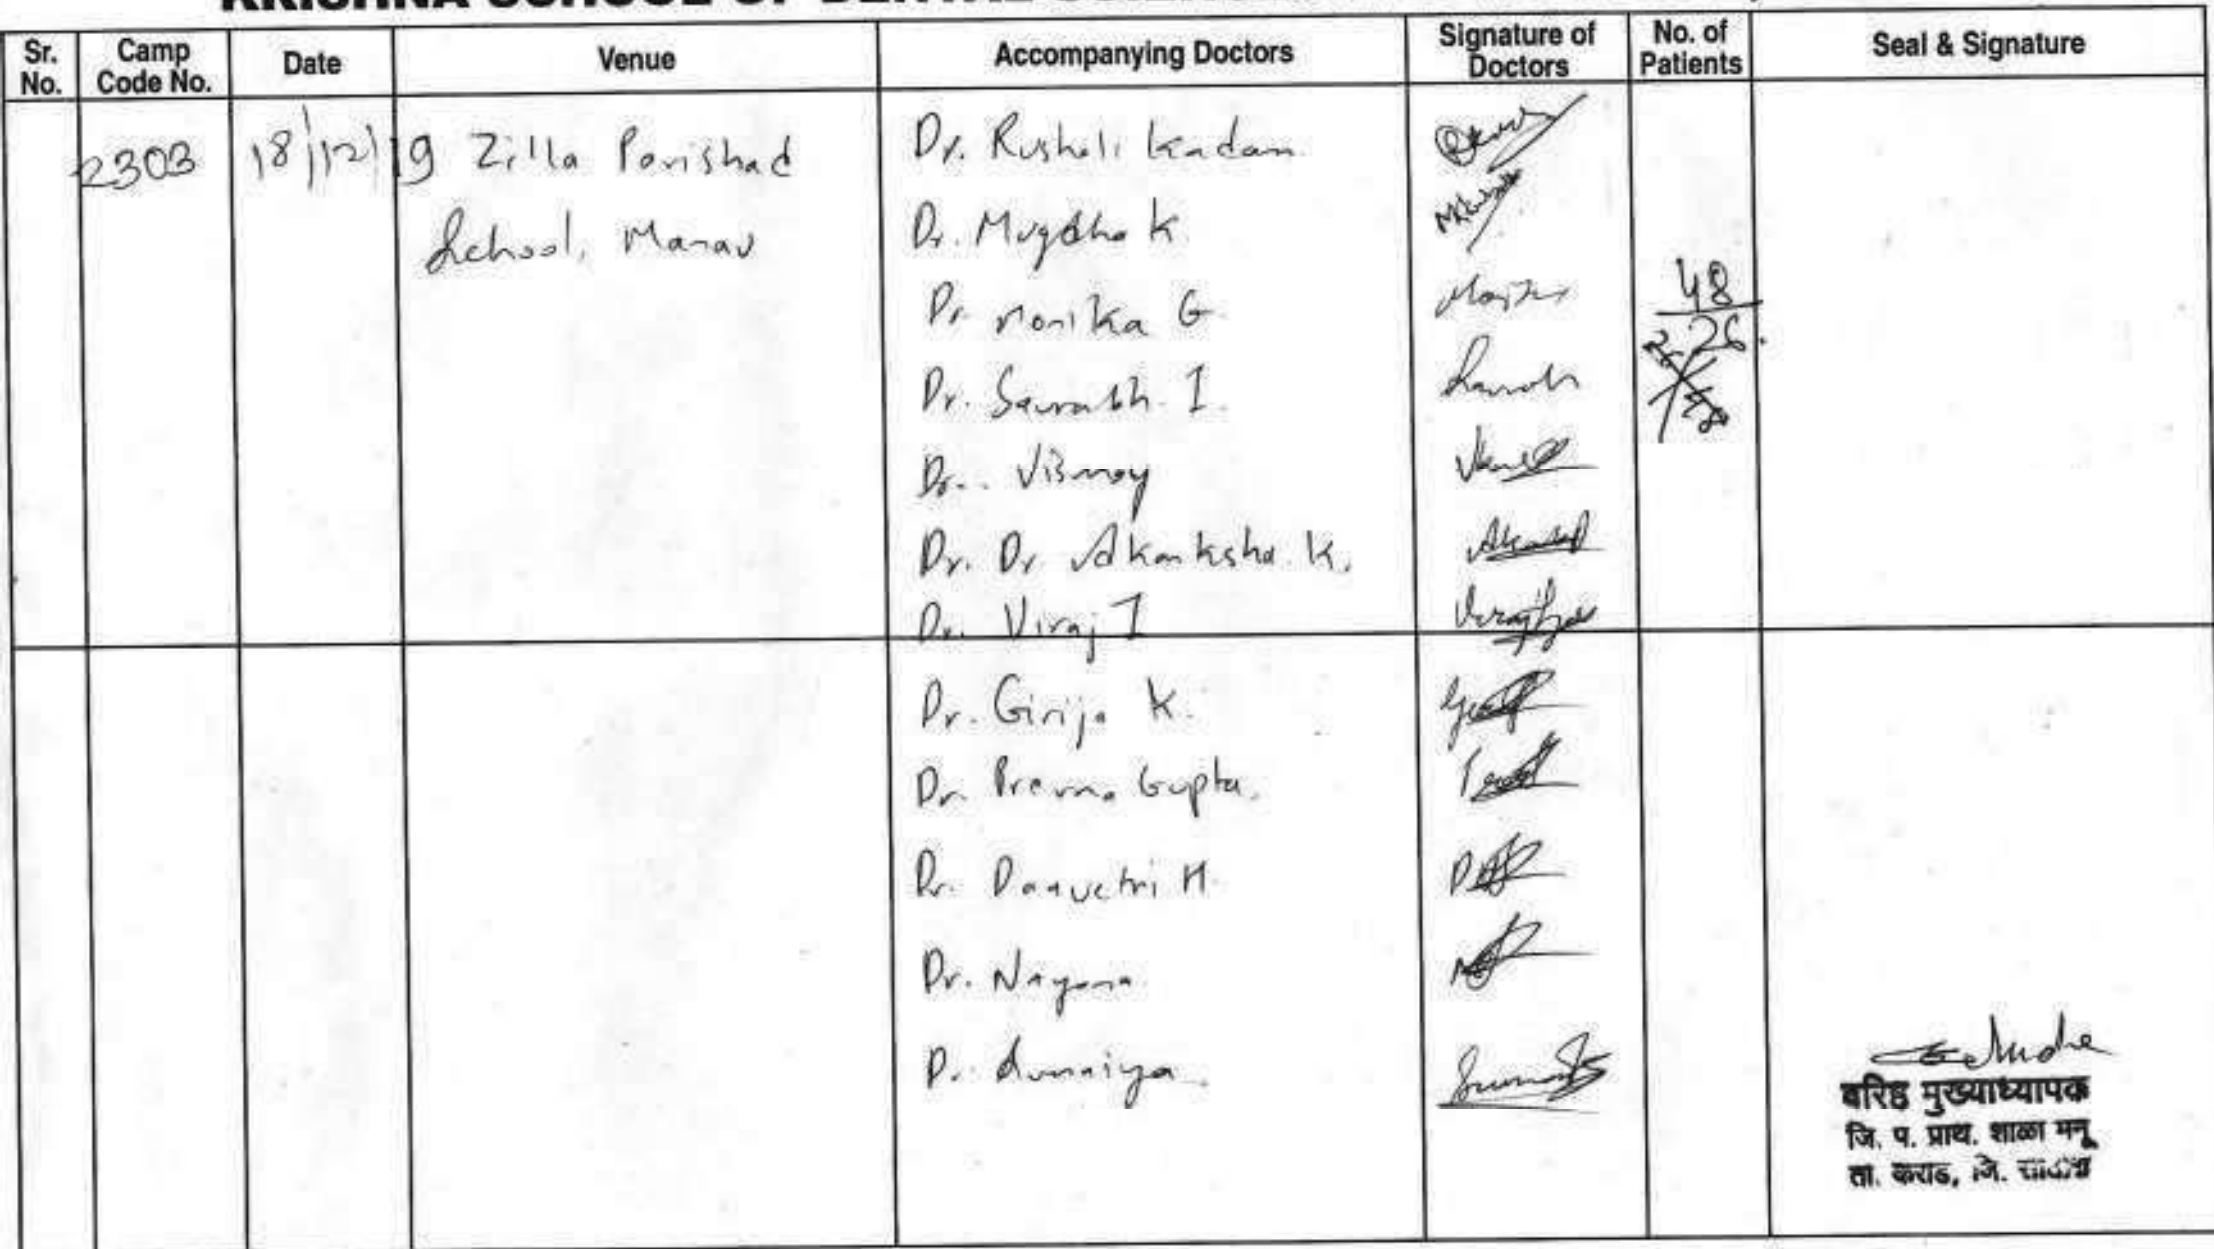 SCHOOL OF DENTAL
Sr. No. Camp Code No. Date Venue Accompanying Doctors Signature of Doctors No. of Patients Seal & Signature
2303 18/12/19 Zilla Parishad Dr. Rusholi Kadam
School, Manav Dr. Mugdha K.
Dr Monika G. 48
Dr. Saurabh. I. 26.
Dr.. Vismay
Dr. Dr Akanksha. K.
Dr. Viraj I
Dr. Girija K.
Dr. Prerna Gupta.
Dr. H.
Dr. Nayana
Dr. Sumaiya
वरिष्ठ मुख्याध्यापक
जि. प. प्राथ. शाळा मनू
ता. कराड, जि.